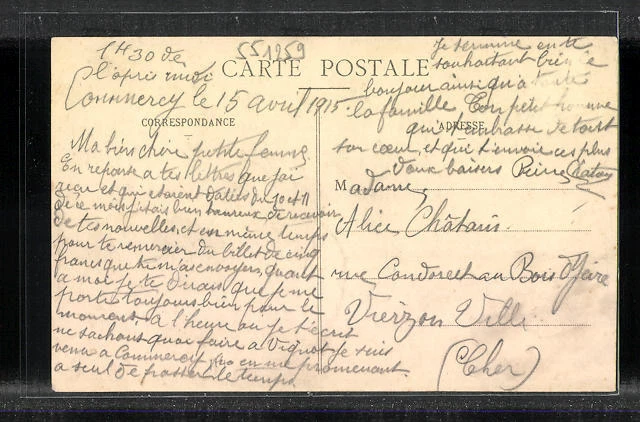 1H30 de
l'après midi
551259
CARTE POSTALE
Commercy le 15 avril 1915
CORRESPONDANCE
Ma bien chère petite femme
En reponse a tes lettres que j'ai
reçu et qui etaient datées du 10 et 11
de ce mois j'etais bien heureux de recevoir
de tes nouvelles, et en même temps
pour te remercier du billet de cinq
francs que tu m'as envoyer, quant
a moi je te dirais que je me
porte toujours bien pour le
moment, a l'heure ou je t'ecrit
ne sachant quoi faire a Vignot je suis
venu a Commercy en me promenant
a seul de passer le temps
Je termine en te
souhaitant bien le
bonjour ainsi qu'a toute
la famille Ton petit homme
ADRESSE
qui t'embrasse de tout
son cœur, et qui t'envoie ces plus
doux baisers Pierre Chatain
Madame
Alice Châtain
rue Condorcet au Bois d'Yèvre
Vierzon Ville
(Cher)